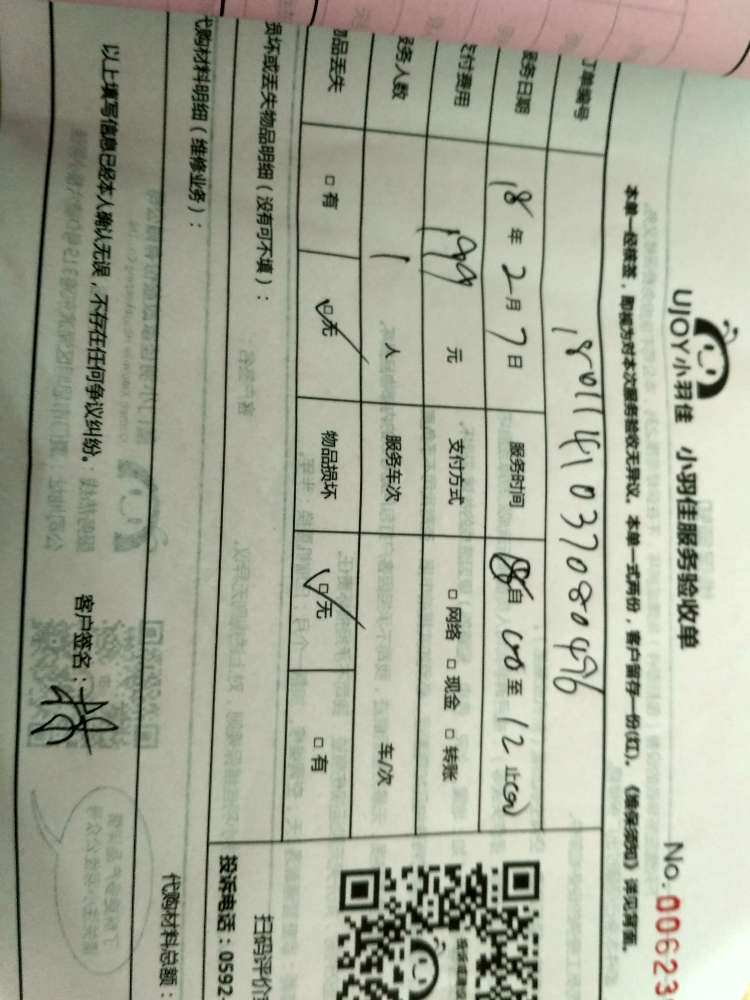 UJOY小羽佳 小羽佳服务验收单
No.00623
本单一经核签，即视为对本次服务验收无异议。本单一式两份，客户留存一份(红)。《维保须知》详见背面。
订单编号 1801141037080496
服务日期 18年2月7日 服务时间 自 至12止
支付费用 199元 支付方式 □网络 □现金 □转账
服务人数 1人 服务车次 车/次
物品丢失 □有 □无 物品损坏 □无 □有
损坏或丢失物品明细（没有可不填）：
扫码评价
投诉电话：0592
代购材料明细（维修业务）：
代购材料总额：
以上填写信息已经本人确认无误，不存在任何争议纠纷。 客户签名：